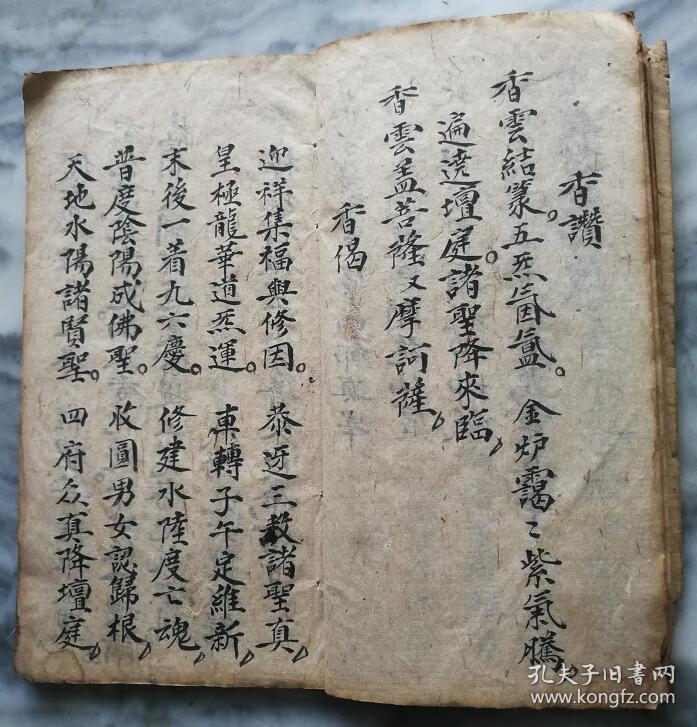 香讚
香雲結篆。五炁氤氳。金炉靄〻紫氣騰。
遍遶壇庭。諸聖降來臨。
香雲盖菩薩又摩訶薩。
香偈
迎祥集福與修因。恭迓三教諸聖真。
皇極龍華道炁運。車轉子午定維新。
末後一着九六慶。修建水陸度亡魂。
普度陰陽成佛聖。收圓男女認歸根。
天地水陽諸賢聖。四府众真降壇庭。
孔夫子旧书网
www.kongfz.com